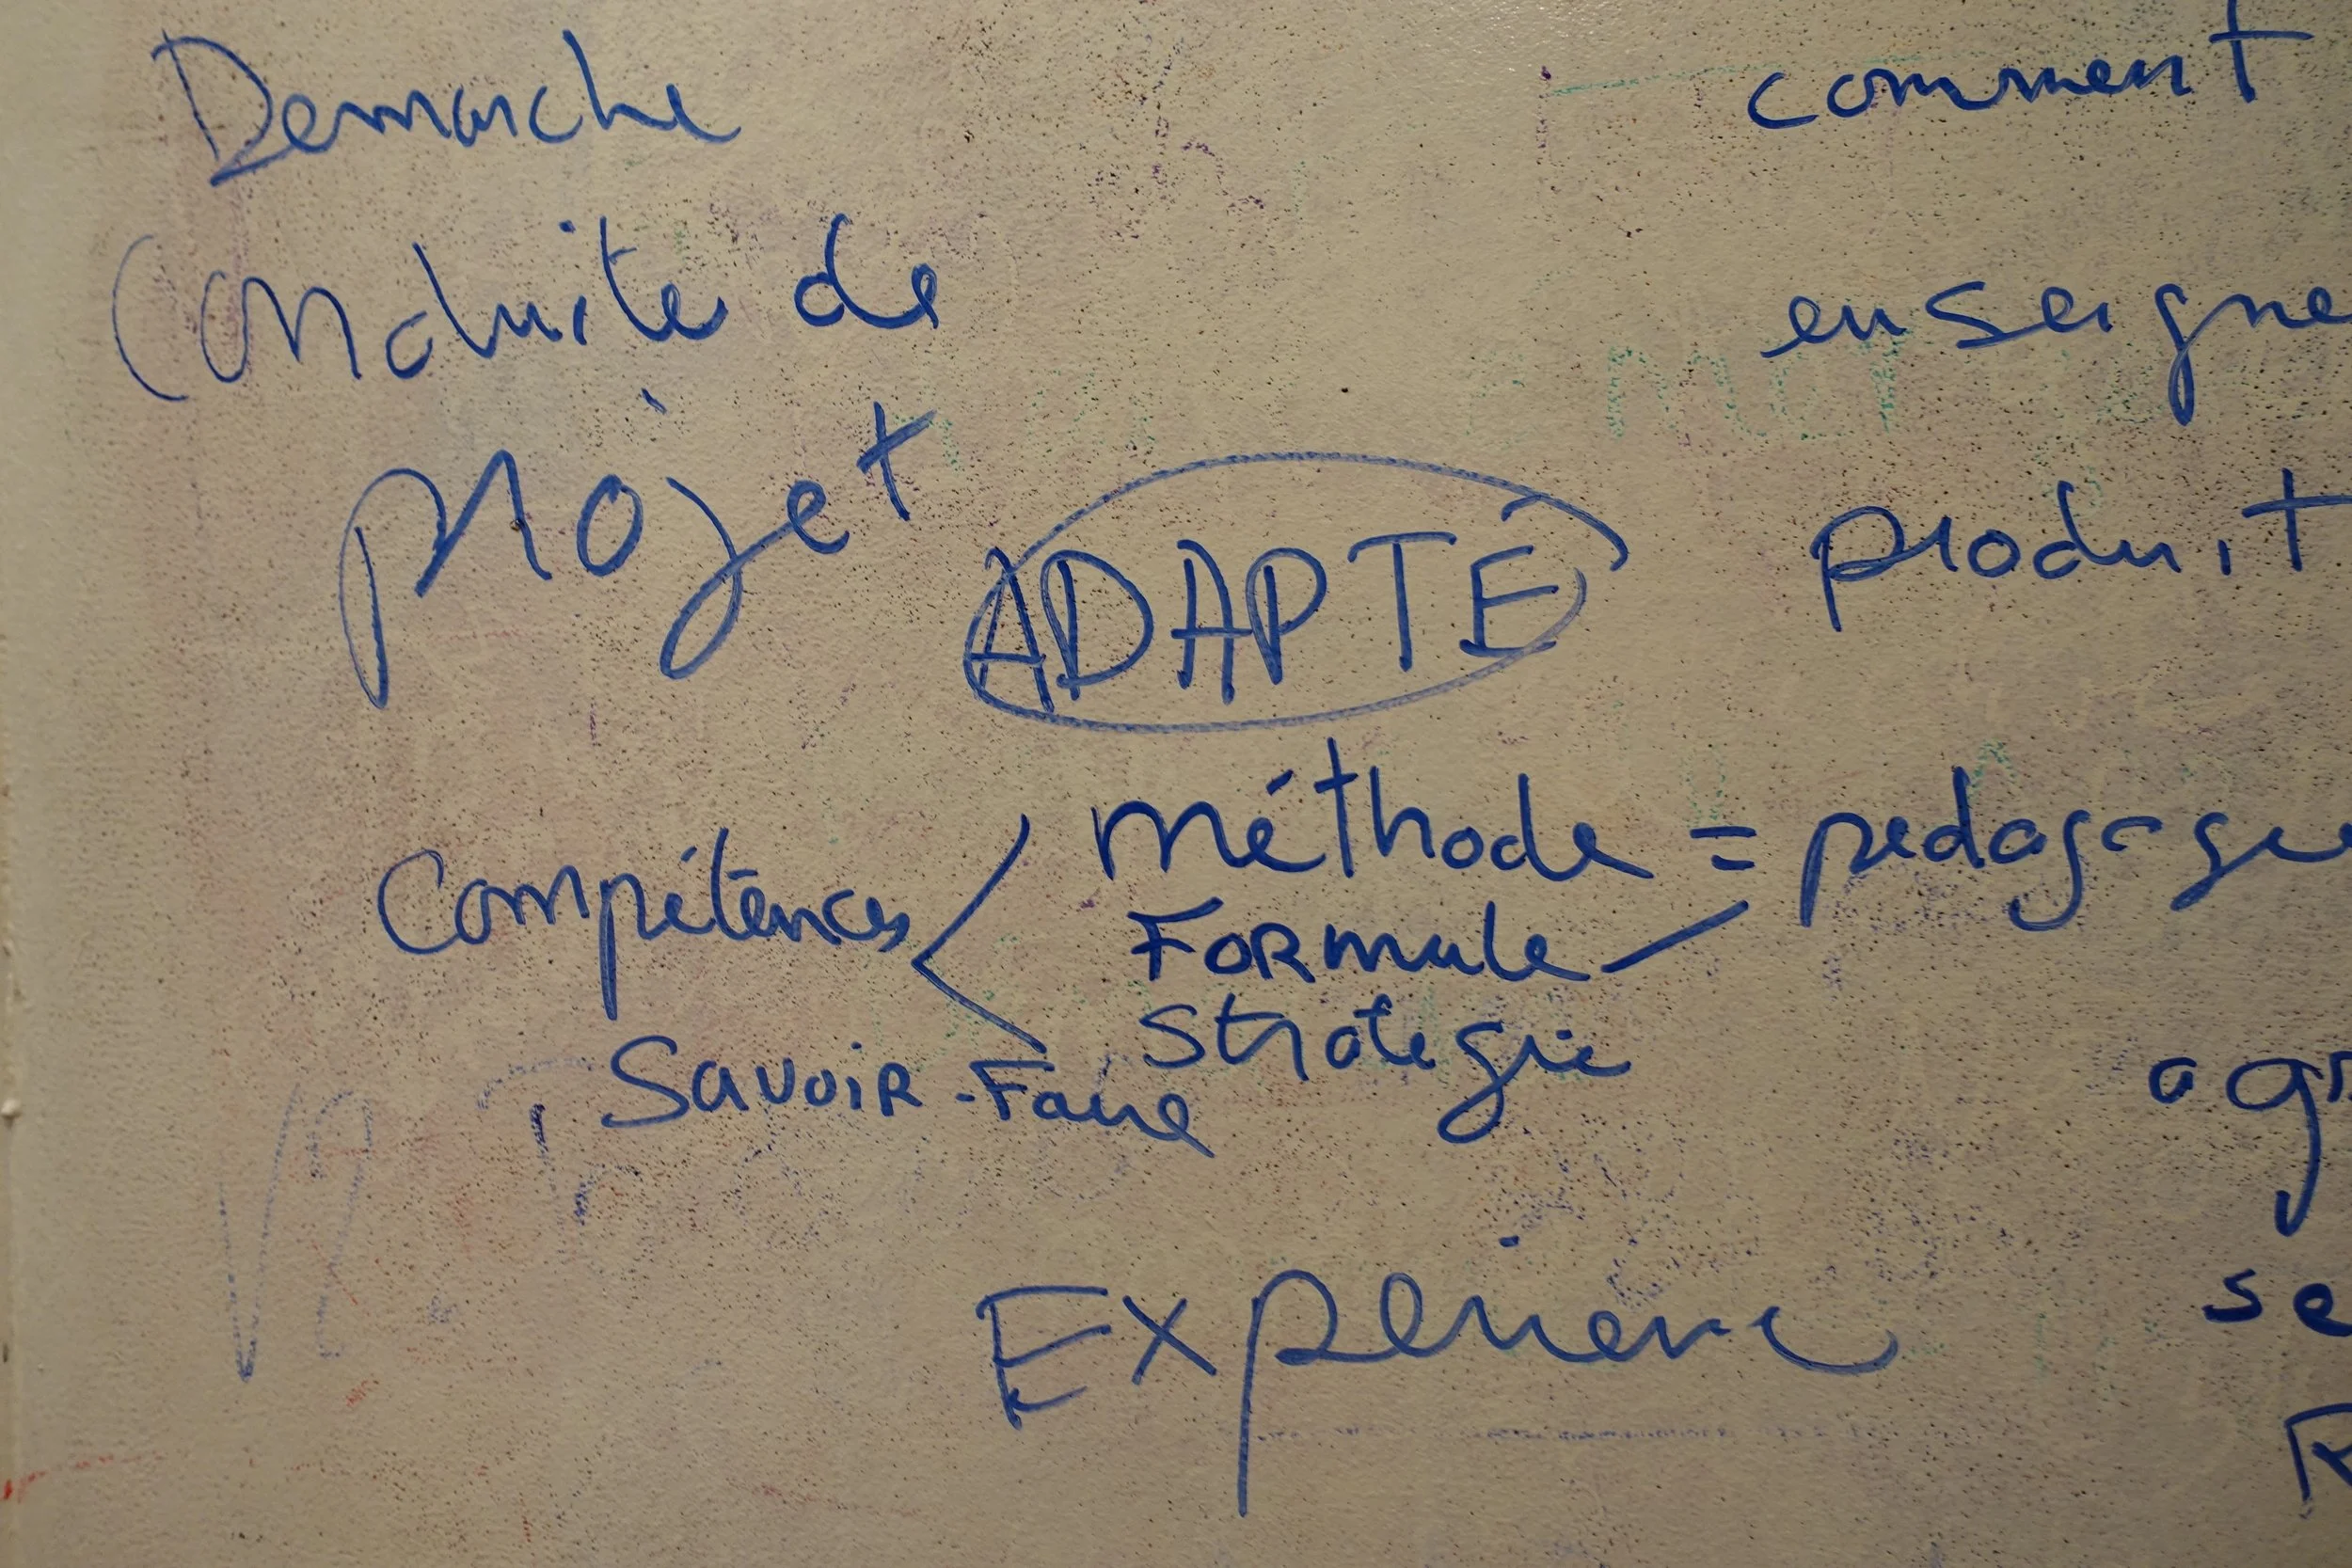 Demarche
comment
Conduite de
enseigne
projet
produit
ADAPTÉ
méthode = pedagogie
Compétences
Formule
Stratégie
Savoir-Faire
agr
se
Experience
R